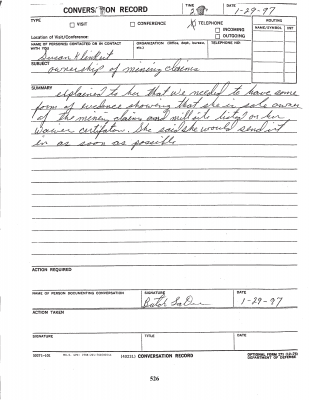 CONVERSATION RECORD
TIME
DATE
1-29-97
TYPE
VISIT
CONFERENCE
TELEPHONE
INCOMING
OUTGOING
ROUTING
NAME/SYMBOL INT
Location of Visit/Conference:
NAME OF PERSON(S) CONTACTED OR IN CONTACT WITH YOU
ORGANIZATION (Office, dept., bureau, etc.)
TELEPHONE NO.
Susan
SUBJECT
ownership of mining claims
SUMMARY
explained to her that we needed to have some
form of evidence showing that she is sole owner
of the mining claims and mill site listed on her
waiver certifaton. She said she would send it
in as soon as possible
ACTION REQUIRED
NAME OF PERSON DOCUMENTING CONVERSATION
SIGNATURE
Butch
DATE
1-29-97
ACTION TAKEN
SIGNATURE
TITLE
DATE
50271-101
CONVERSATION RECORD
OPTIONAL FORM 271 (12-76)
DEPARTMENT OF DEFENSE
526